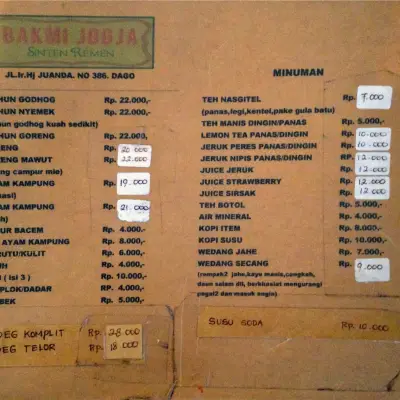 BAKMI JOGJA
SINTEN REMEN
JL.Ir.Hj JUANDA. NO 386. DAGO
HUN GODHOG Rp. 22.000,-
HUN NYEMEK Rp. 22.000,-
hun godhog kuah sedikit)
HUN GORENG Rp. 22.000,-
ENG Rp. 20.000
ENG MAWUT Rp. 22.000
ng campur mie)
AM KAMPUNG Rp. 19.000
AM KAMPUNG Rp. 21.000
h)
UR BACEM Rp. 4.000,-
AYAM KAMPUNG Rp. 8.000,-
RUTU/KULIT Rp. 6.000,-
IH Rp. 4.000,-
I ( isi 3 ) Rp. 10.000,-
PLOK/DADAR Rp. 4.000,-
BEK Rp. 5.000,-
DEG KOMPLIT Rp. 28.000
DEG TELOR Rp. 18.000
MINUMAN
TEH NASGITEL Rp. 7.000
(panas,legi,kentel,pake gula batu)
TEH MANIS DINGIN/PANAS Rp. 5.000,-
LEMON TEA PANAS/DINGIN Rp. 10.000
JERUK PERES PANAS/DINGIN Rp. 10.000
JERUK NIPIS PANAS/DINGIN Rp. 12.000
JUICE JERUK Rp. 12.000
JUICE STRAWBERRY Rp. 12.000
JUICE SIRSAK Rp. 12.000
TEH BOTOL Rp. 5.000,-
AIR MINERAL Rp. 4.000,-
KOPI ITEM Rp. 8.000,-
KOPI SUSU Rp. 10.000,-
WEDANG JAHE Rp. 7.000,-
WEDANG SECANG Rp. 9.000
(rempah2 jahe,kayu manis,cengkeh,
daun salam dll, berkhasiat mengurangi
pegal2 dan masuk angin)
SUSU SODA Rp. 10.000